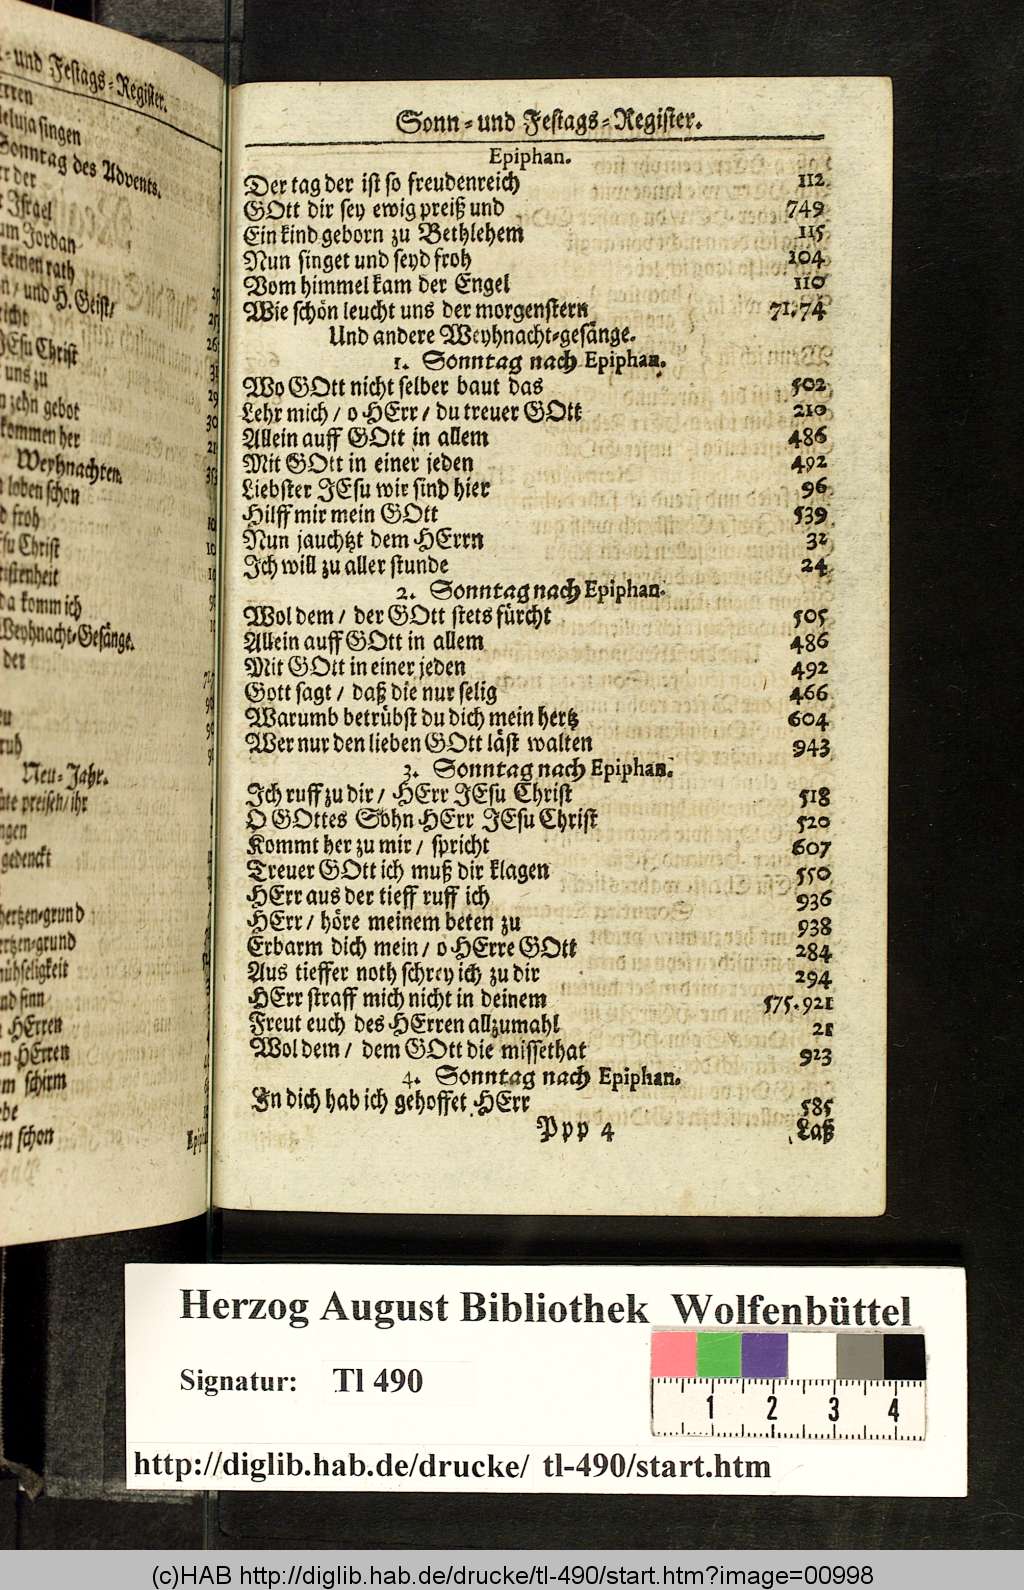 - und Festags-Register.
Sonntag des Advents.
Israel
Jordan
keinen rath
und H. Geist/
JEsu Christ
uns zu
zehn gebot
kommen her
Weyhnachten.
loben schon
froh
Christ
da komm ich
Weyhnacht-Gesänge.
der
Neu-Jahr.
preisen/ ihr
gedenckt
hertzen-grund
hertzen-grund
HErren
HErren
schirm
schon
Sonn- und Festags-Register.
Epiphan.
Der tag der ist so freudenreich 112
GOtt dir sey ewig preiß und 749
Ein kind geborn zu Bethlehem 115
Nun singet und seyd froh 104
Vom himmel kam der Engel 110
Wie schön leucht uns der morgenstern 71.74
Und andere Weyhnacht-gesänge.
1. Sonntag nach Epiphan.
Wo GOtt nicht selber baut das 502
Lehr mich/ o HErr/ du treuer GOtt 210
Allein auff GOtt in allem 486
Mit GOtt in einer jeden 492
Liebster JEsu wir sind hier 96
Hilff mir mein GOtt 539
Nun jauchtzt dem HErrn 32
Ich will zu aller stunde 24
2. Sonntag nach Epiphan.
Wol dem/ der GOtt stets fürcht 505
Allein auff GOtt in allem 486
Mit GOtt in einer jeden 492
Gott sagt/ daß die nur selig 466
Warumb betrübst du dich mein hertz 604
Wer nur den lieben GOtt läst walten 943
3. Sonntag nach Epiphan.
Ich ruff zu dir/ HErr JEsu Christ 518
O GOttes Sohn HErr JEsu Christ 520
Kommt her zu mir/ spricht 607
Treuer GOtt ich muß dir klagen 550
HErr aus der tieff ruff ich 936
HErr/ höre meinem beten zu 938
Erbarm dich mein/ o HErre GOtt 284
Aus tieffer noth schrey ich zu dir 294
HErr straff mich nicht in deinem 575.921
Freut euch des HErren allzumahl 21
Wol dem/ dem GOtt die missethat 923
4. Sonntag nach Epiphan.
In dich hab ich gehoffet HErr 585
Ppp 4 Laß
Herzog August Bibliothek Wolfenbüttel
Signatur: Tl 490
1 2 3 4
http://diglib.hab.de/drucke/ tl-490/start.htm
(c)HAB http://diglib.hab.de/drucke/tl-490/start.htm?image=00998